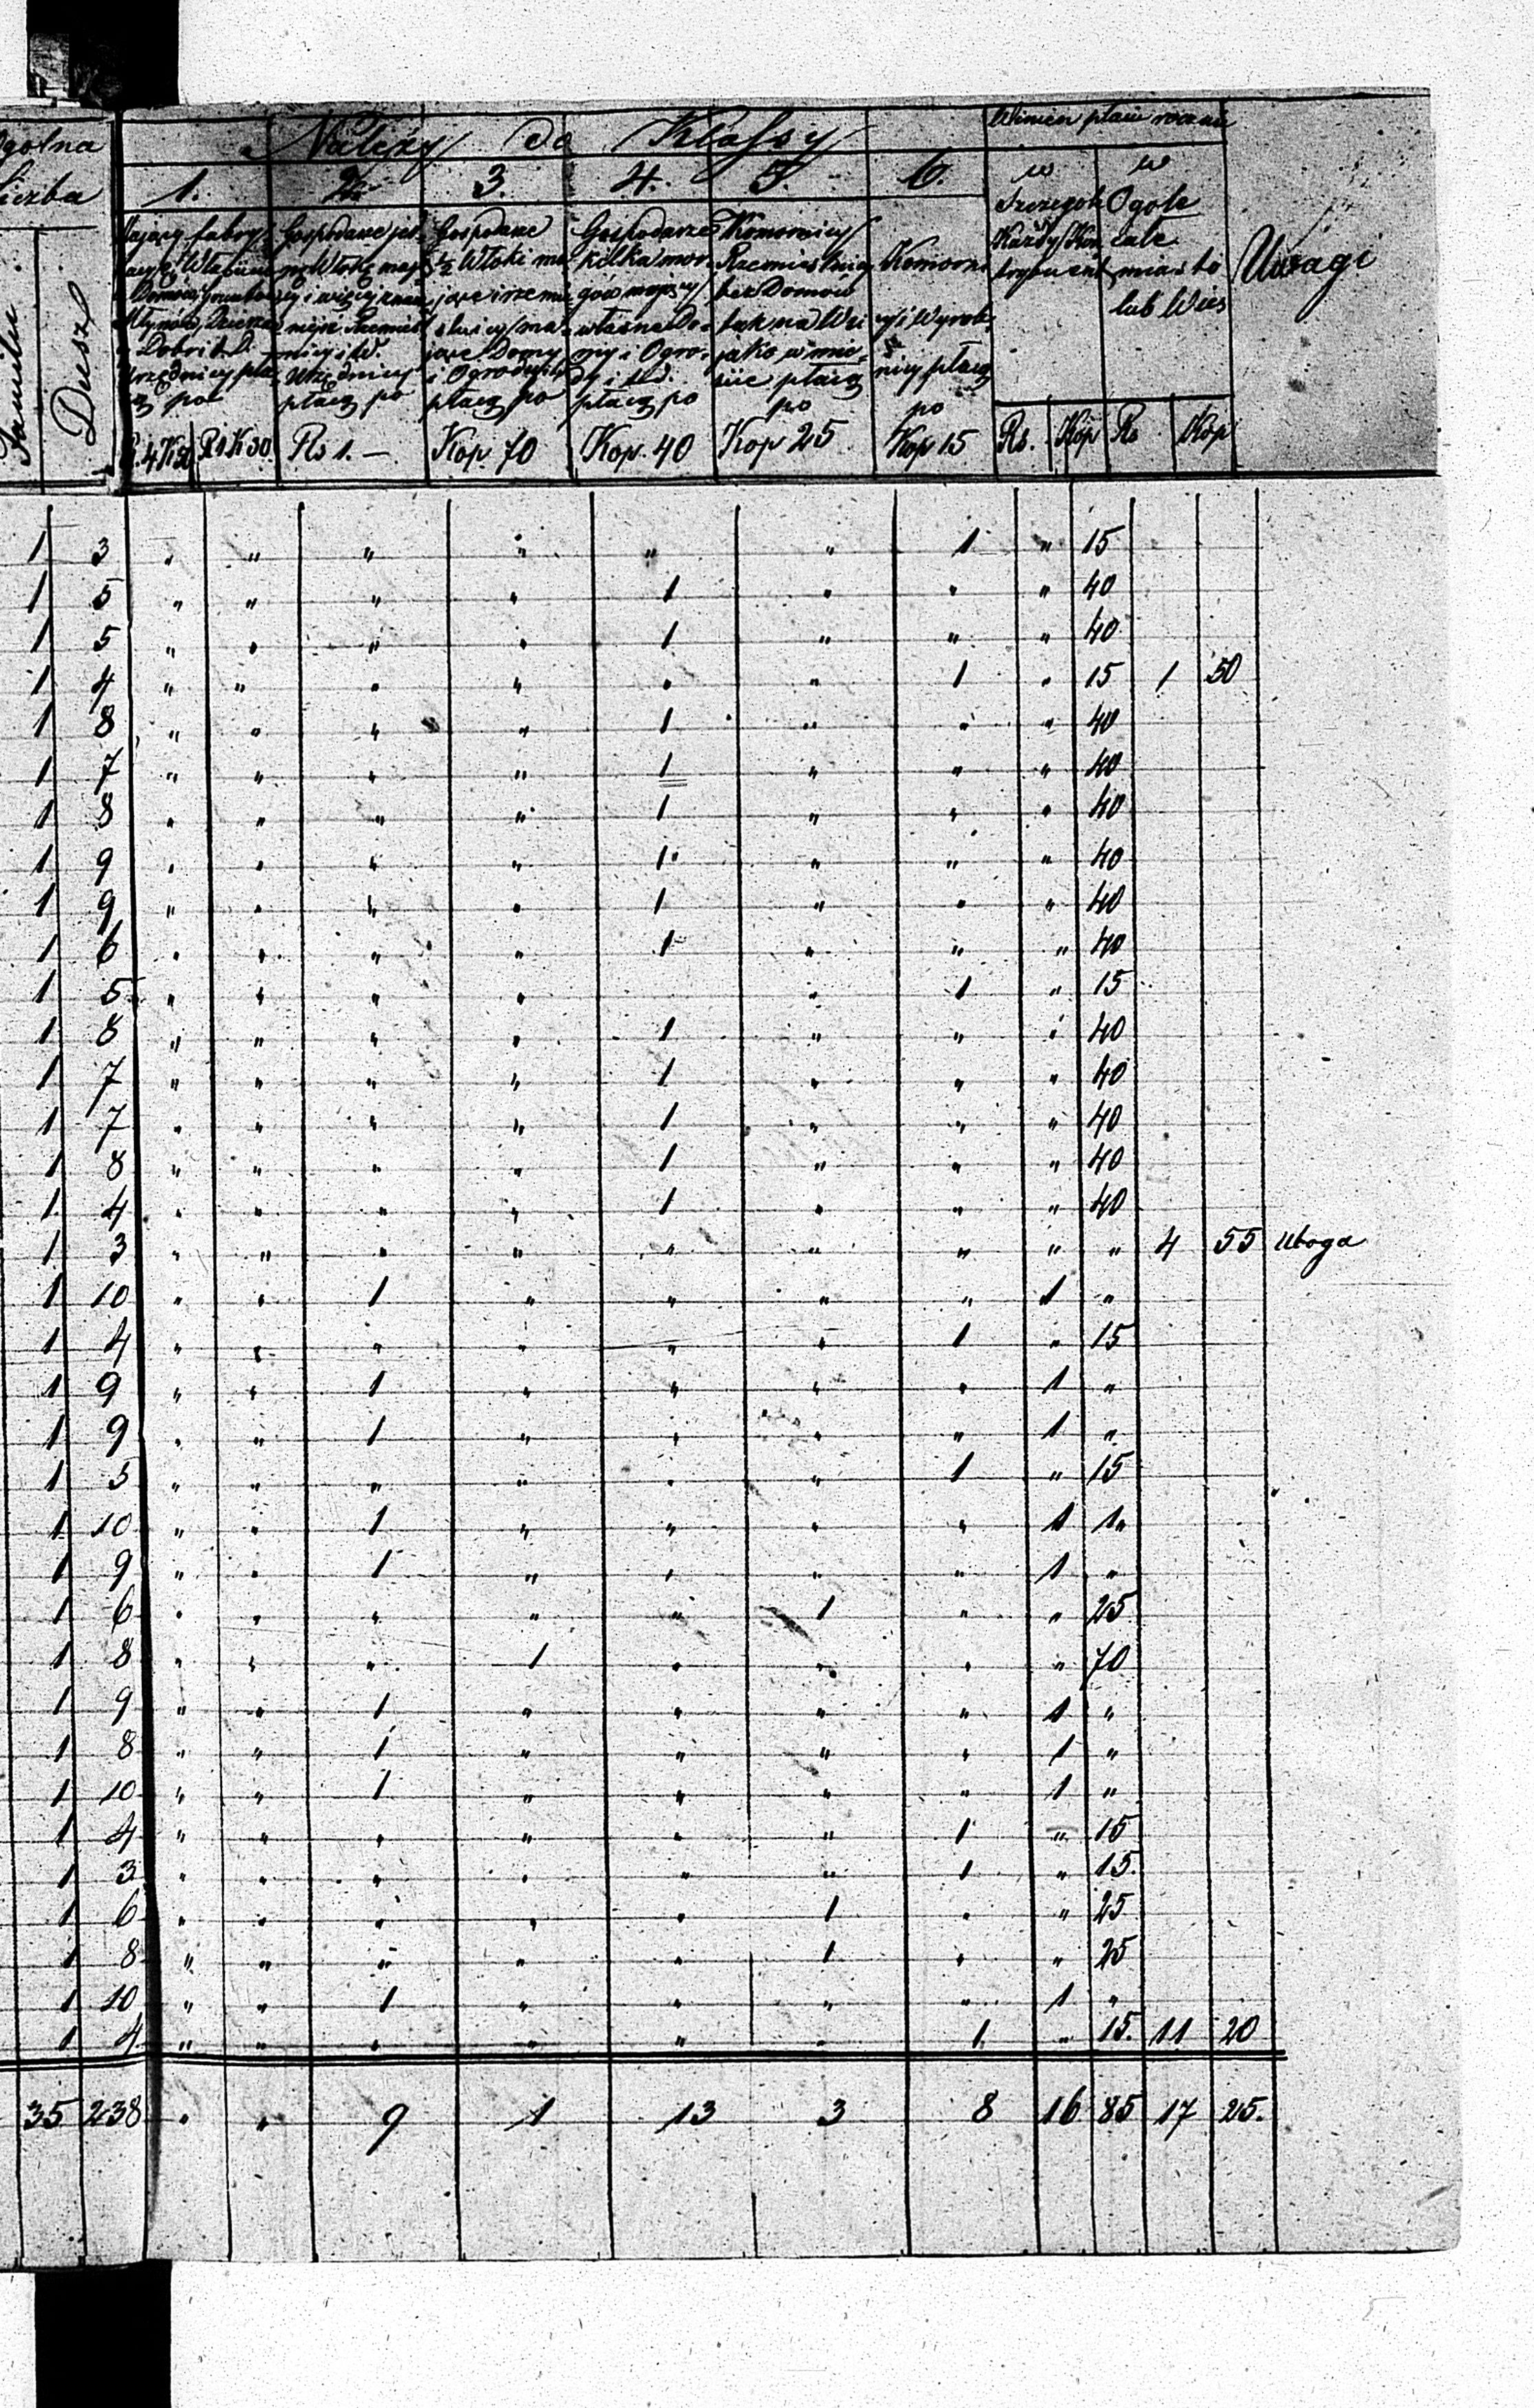 Ogolna Liczba
Familii Dusz
Należy do Klassy
Winien płacić rocznie
1. 2. 3. 4. 5. 6.
w Szczegole Każdy Kontrybuent
w Ogole całe miasto lub Wieś
Uwagi
Gospodarze
½ Włoki ma
jące i rzemie
jące Domy
i Ogrody
płacą po
Gospodarze
kilka mor-
gów mający
własne Do-
my i Ogro-
dy i t.d.
płacą po
Komornicy
Rzemieślnicy
bez Domow
tak na Wsi
jako w mie-
ście płacą
po
Komorni
cy i Wyrob-
nicy płacą
po
R. 4 K 50 R 1 K 30 Rs 1. — Kop. 70 Kop. 40 Kop 25 Kop 15 Rs. Kop Rs Kop
1 3 " " " " " " 1 " 15
1 5 " " " " 1 " " " 40
1 5 " " " " 1 " " " 40
1 4 " " " " " " 1 " 15 1 50
1 8 " " " " 1 " " " 40
1 7 " " " " 1 " " " 40
1 8 " " " " 1 " " " 40
1 9 " " " " 1 " " " 40
1 9 " " " " 1 " " " 40
1 6 " " " " 1 " " " 40
1 5 " " " " " 1 " 15
1 8 " " " " 1 " " " 40
1 7 " " " " 1 " " " 40
1 7 " " " " 1 " " " 40
1 8 " " " " 1 " " " 40
1 4 " " " " 1 " " " 40
1 3 " " " " " " " " " 4 55 uboga
1 10 " " 1 " " " " 1 "
1 4 " " " " " " 1 " 15
1 9 " " 1 " " " " 1 "
1 9 " " 1 " " " " 1 "
1 5 " " " " " " 1 " 15
1 10 " " 1 " " " " 1 1"
1 9 " " 1 " " " " 1 "
1 6 " " " " " 1 " " 25
1 8 " " " 1 " " " " 70
1 9 " " 1 " " " " 1 "
1 8 " " 1 " " " " 1 "
1 10 " " 1 " " " " 1 "
1 4 " " " " " " 1 " 15
1 3 " " " " " " 1 " 15.
1 6 " " " " " 1 " " 25
1 8 " " " " " 1 " " 25
1 10 " " 1 " " " " 1 "
1 4 " " " " " " 1 " 15. 11 20
35 238 " " 9 1 13 3 8 16 85 17 25.